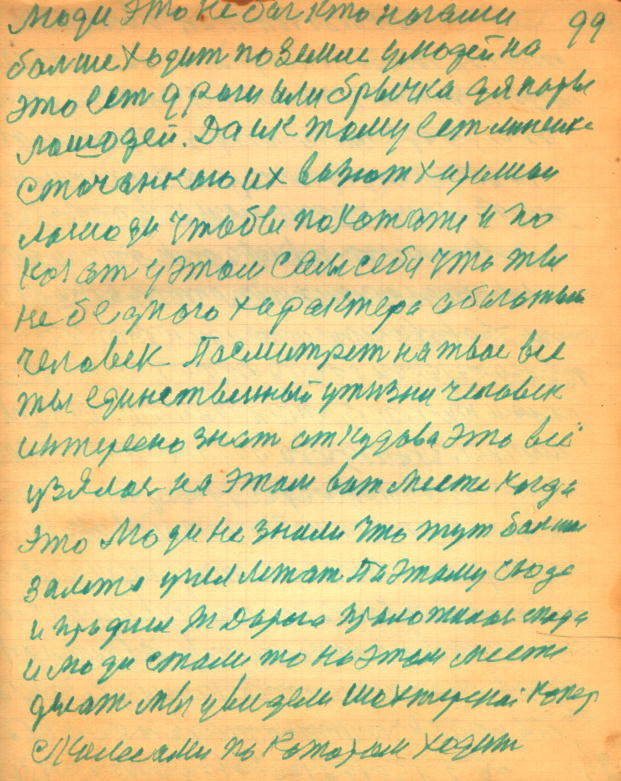 люди это не бог кто ногами 99
больше ходит по земле у людей на
это ест дроги или бричка для пары
лошодей. Да и к тому ест линейка
с точанкою их возют хорошии
лошоди чтобы покотати и по
казат у этом самы себя что ты
не бедного характера а богатый
человек Посмитрет на твое все
ты единственный у жизни человек
интересно знат откудова это всё
узялос на этом вот месте когда
это люди не знали что тут болше
золото угля лежат Поэтому сюда
и ж дорога проложилас
и люди стали то на этом месте
дуват мы увидели шахтерский копер
с колесами по котором ходит